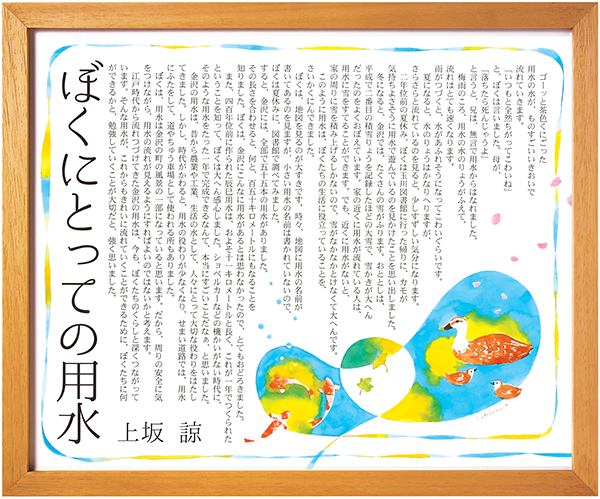 ぼくにとっての用水
上坂 諒
ゴーッと茶色くにごった
用水の水が、ものすごいいきおいで
流れていきます。
「いつもと全然ちがってこわいね」
と、ぼくは言いました。母が、
「落ちたら死んじゃうよ」
と言うと、兄は、無言で用水からはなれました。
梅雨のころ、用水の水のりょうがふえて、
流れはとても速くなります。
雨がつづくと、水があふれそうになってこわいぐらいです。
夏になると、水のりょうはかなりへりますが、
さらさらと流れているのを見ると、少しすずしい気分になります。
二年位前の夏休み、ぼくは玉川図書館に行った帰りに、カモが
気持ちよさそうに用水で遊んでいるのを見かけたことを思い出しました。
冬になると、金沢では、たくさんの雪がふります。おととしは、
平成で二番目の積雪りょうを記録したほどの大雪で、雪かきが大へん
だったのをよくおぼえています。家の近くに用水が流れている人は、
用水に雪をすてることができます。でも、近くに用水がないと、
家の周りに雪を積み上げるしかないので、雪がなかなかとけなくて大へんです。
このように用水は、ぼくたちの生活に役立っていることを、
さいかくにんできました。
ぼくは、地図を見るのが大すきです。時々、地図に用水の名前が
書いてあるのを見ますが、小さい用水の名前は書かれていないので、
ぼくは夏休みに、図書館で調べてみました。
すると、金沢には、全部で五十五本の用水がありました。
その長さを合わせると、何と、約百五十キロメートルにもなることを
知りました。ぼくは、金沢にこんなに用水があるとは思わなかったので、とてもおどろきました。
また、四百年位前に作られた辰巳用水は、およそ十一キロメートルと長く、これが一年でつくられた
ということを知って、ぼくは大へん感心しました。ショベルカーなどの機かいがない時代に、
そのような用水をたった一年で完成できるなんて、本当にすごいことだなぁ、と思いました。
金沢の用水は、昔から農業や工業、生活の水として、人々にとって大切な役わりをはたし
てきました。しかし、時代がかわると、用水の役わりが少なくなり、せまい道路では、用水
にふたをして、道やちゅう車場として使われる所もありました。
ぼくは、用水は金沢の町の風景の一部になっていると思います。だから、周りの安全に気
をつけながら、用水の流れが見えるようにすればよいのではないかと考えます。
江戸時代から流れつづけてきた金沢の用水は、今も、ぼくたちのくらしと深くつながって
います。そんな用水が、これからもきれいに流れていくことができるために、ぼくたちに何
ができるかと、勉強していくことが大切だと、強く思いました。